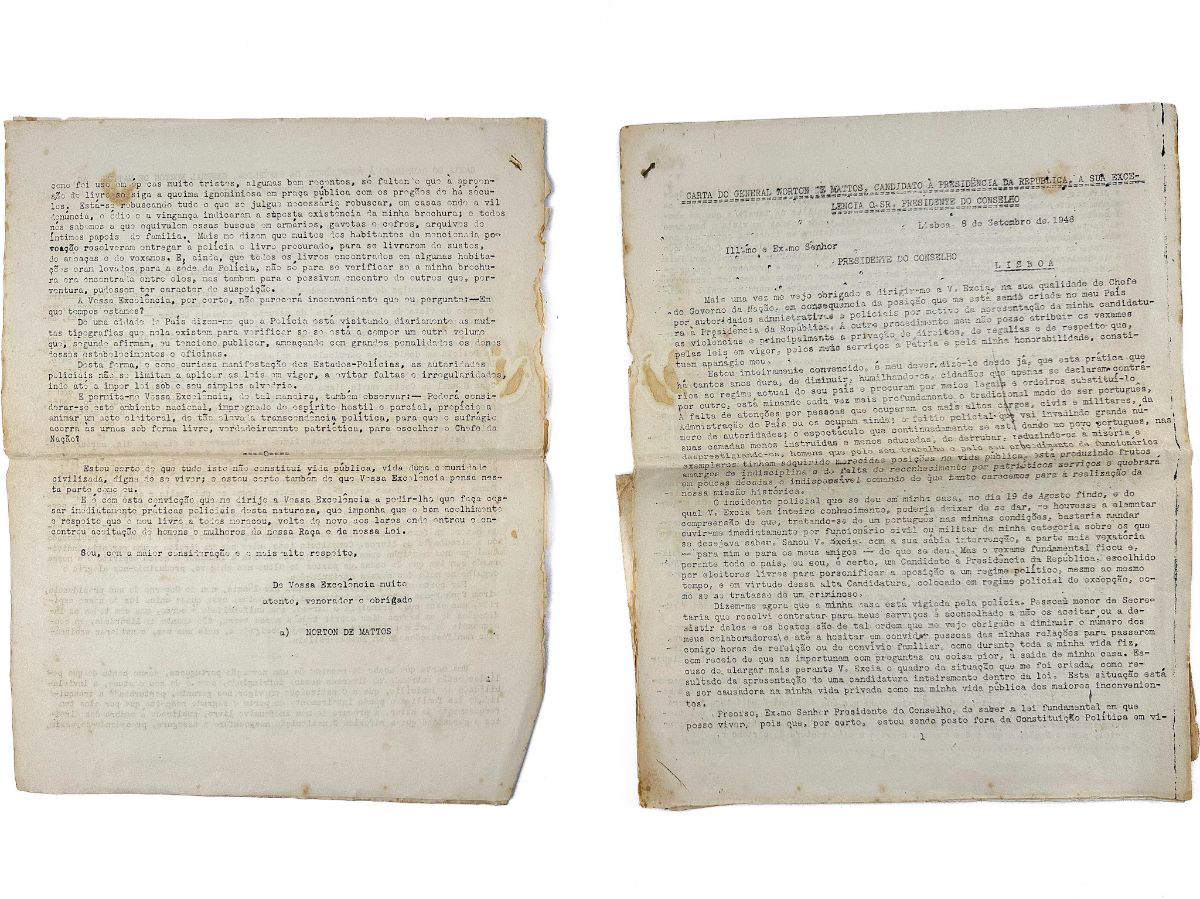 como foi uso em épocas muito tristes, algumas bem recentes, só faltando que à apreen-
são do livro se siga a queima ignominiosa em praça pública com os pregões de há sécu-
los. Está-se rebuscando tudo o que se julgue necessário rebuscar, em casas onde a vil
denúncia, o ódio e a vingança indicaram a suposta existencia da minha brochura; e todos
nós sabemos a que equivalem essas buscas em armários, gavetas e cofres, arquivos de
íntimos papeis de família. Mais me dizem que muitos dos habitantes da mencionada po-
voação resolveram entregar à polícia o livro procurado, para se livrarem de sustos,
de ameaças e de vexames. E, ainda, que todos os livros encontrados em algumas habita-
ções eram levados para a sede da Polícia, não só para se verificar se a minha brochu-
ra era encontrada entre eles, mas tambem para o possivem encontro de outros que, por-
ventura, pudessem ter caracter de suspeição.
A Vossa Excelência, por certo, não parecerá inconveniente que eu pergunte:—Em
que tempos estamos?
De uma cidade do País dizem-me que a Polícia está visitando diariamente as mui-
tas tipografias que nela existem para verificar se se está a compor um outro volume
que, segundo afirmam, eu tenciono publicar, ameaçando com grandes penalidades os donos
desses estabelecimentos e oficinas.
Desta forma, e como curiosa manifestação dos Estados-Polícias, as autoridades
policiais não se limitam a aplicar as leis em vigor, a evitar faltas e irregularidades,
indo até a impor lei sob o seu simples alvedrio.
E permita-me Vossa Excelência, de tal maneira, tambem observar:— Poderá consi-
derar-se este ambiente nacional, impregnado de espírito hostil e parcial, propício a
animar um acto eleitoral, de tão elevada transcendência política, para que o sufrágio
acorra às urnas sob forma livre, verdadeiramente patriótica, para escolher o Chefe da
Nação?
----o----
Estou certo de que tudo isto não constitui vida pública, vida duma comunidade
civilizada, digna de se viver; e estou certo tambem de que Vossa Excelência pensa nes-
ta parte como eu.
E é com esta convicção que me dirijo a Vossa Excelência a pedir-lhe que faça ces-
sar imediatamente práticas policiais desta natureza, que imponha que o bom acolhimento
e respeito que o meu livro a todos mereceu, volte de novo aos lares onde entrou e en-
controu aceitação de homens e mulheres da nossa Raça e da nossa Lei.
Sou, com a maior consideração e o mais alto respeito,
De Vossa Excelência muito
atento, venerador e obrigado
a) NORTON DE MATTOS
CARTA DO GENERAL NORTON DE MATTOS, CANDIDATO À PRESIDÊNCIA DA REPUBLICA, A SUA EXCE-
LENCIA O SR. PRESIDENTE DO CONSELHO
Lisboa, 8 de Setembro de 1948
Illêmo e Exêmo Senhor
PRESIDENTE DO CONSELHO
LISBOA
Mais uma vez me vejo obrigado a dirigir-me a V. Excia, na sua qualidade de Chefe
do Governo da Nação, em consequencia da posição que me está sendo criada no meu País
por autoridades administrativas e policiais por motivo da apresentação da minha candidatu-
ra à Presidência da República. A outro procedimento meu não posso atribuir os vexames
as violências e principalmente a privação de direitos, de regalias e de respeito que,
pelas leis em vigor, pelos meus serviços à Patria e pela minha honorabilidade, consti-
tuem apanágio meu.
Estou inteiramente convencido, é meu dever dizê-lo desde já, que esta prática que
há tantos anos dura, de diminuir, humilhando-os, cidadãos que apenas se declaram contrá-
rios ao regime actual do seu país e procuram por meios legais e ordeiros substituí-lo
por outro, está minando cada vez mais profundamente o tradicional modo de ser português,
A falta de atenções por pessoas que ocuparam os mais altos cargos, civis e militares, da
Administração do País ou os ocupam ainda; o feitio policial que vai invadindo grande nú-
mero de autoridades; o espectaculo que continuamente se está dando ao povo português, nas
suas camadas menos instruidas e menos educadas, de derrubar, reduzindo-os à miséria e
desprestigiando-os, homens que pelo seu trabalho e pelo seu procedimento de funcionários
exemplares tinham adquirido merecidas posições na vida publica, está produzindo frutos
amargos de indisciplina e de falta de reconhecimento por patrióticos serviços e quebrará
em poucas décadas o indispensável comando de que tanto carecemos para a realização da
nossa missão histórica.
O incidente policial que se deu em minha casa, no dia 19 de Agosto findo, e do
qual V. Excia tem inteiro conhecimento, poderia deixar de se dar, se houvesse a elementar
compreensão de que, tratando-se de um português nas minhas condições, bastaria mandar
ouvir-me imediatamente por funcionário civil ou militar da minha categoria sobre os que
se desejava saber. Sanou V. Excia, com a sua sábia intervenção, a parte mais vexatória
— para mim e para os meus amigos — do que se deu. Mas o vexame fundamental ficou e,
perante todo o país, eu sou, é certo, um Candidato à Presidencia da Republica, escolhido
por eleitores livres para personificar a oposição a um regime político, mesmo ao mesmo
tempo, e em virtude dessa alta Candidatura, colocado em regime policial de excepção, co-
mo se se tratasse de um criminoso.
Dizem-me agora que a minha casa está vigiada pela polícia. Pessoal menor de Secre-
taria que resolvi contratar para meus serviços é aconselhado a não os aceitar ou a de-
sistir deles e os boatos são de tal ordem que me vejo obrigado a diminuir o número dos
meus colaboradores e até a hesitar em convidar pessoas das minhas relações para passarem
comigo horas de refeição ou de convívio familiar, como durante toda a minha vida fiz,
com receio de que as importunem com preguntas ou coisa pior, à saida de minha casa. Es-
cuso de alargar mais perante V. Excia o quadro da situação que me foi criada, como re-
sultado da apresentação de uma candidatura inteiramente dentro da lei. Esta situação está
a ser causadora na minha vida privada como na minha vida pública dos maiores inconvenien-
tes.
Preciso, Exêmo Senhor Presidente do Conselho, de saber a lei fundamental em que
posso viver, pois que, por certo, estou sendo posto fora da Constituição Política em vi-
1